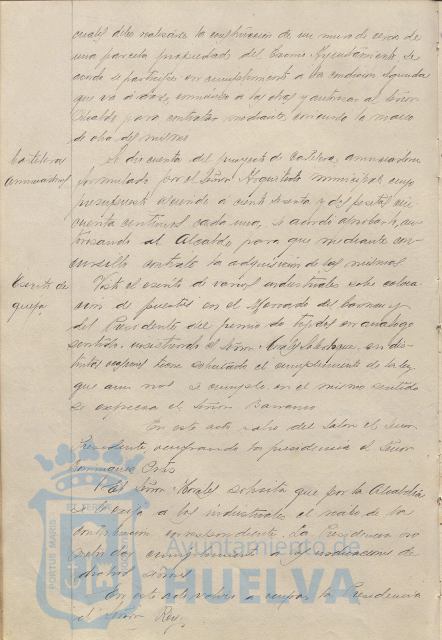 cuales debe realizarse la construcción de un muro de cerca de
una parcela propiedad del Excmo Ayuntamiento, se
acordó
que va a dar, comience a las obras y autorizar al Señor
Alcalde para contratar mediante concurso la mano
de obra del mismo
Carteleras
anunciadoras
Se dió cuenta del proyecto de Carteleras anunciadoras
formulado por el Señor Arquitecto municipal cuyo
presupuesto asciende a ciento setenta y dos pesetas cin
cuenta centimos cada una, se acordó aprobarlo, au
torizando al Alcalde para que mediante con
cursillo contrate la adquisición de las mismas
Escrito de
queja
Visto el escrito de varios industriales sobre coloca
ción de puestos en el Mercado del Carmen y
del Presidente del gremio de tejidos en analogo
sentido, el Señor en dis
tintas ocasiones tiene solicitado el cumplimiento de la ley
que aun no se cumple, en el mismo sentido
se expresa el Señor Barranco
En este acto sale del Salon el Señor
Presidente, ocupando la presidencia el Señor
Dominguez Ortiz
El Señor Morales solicita que por la Alcaldia
se a los industriales el recibo de la
contribución correspondiente. La Presidencia
las de
dichos Señores
En este acto vuelve a ocupar la Presidencia
el Señor Rey.
PORTUS MARIS
ET TERRAE
Ayuntamiento de
HUELVA